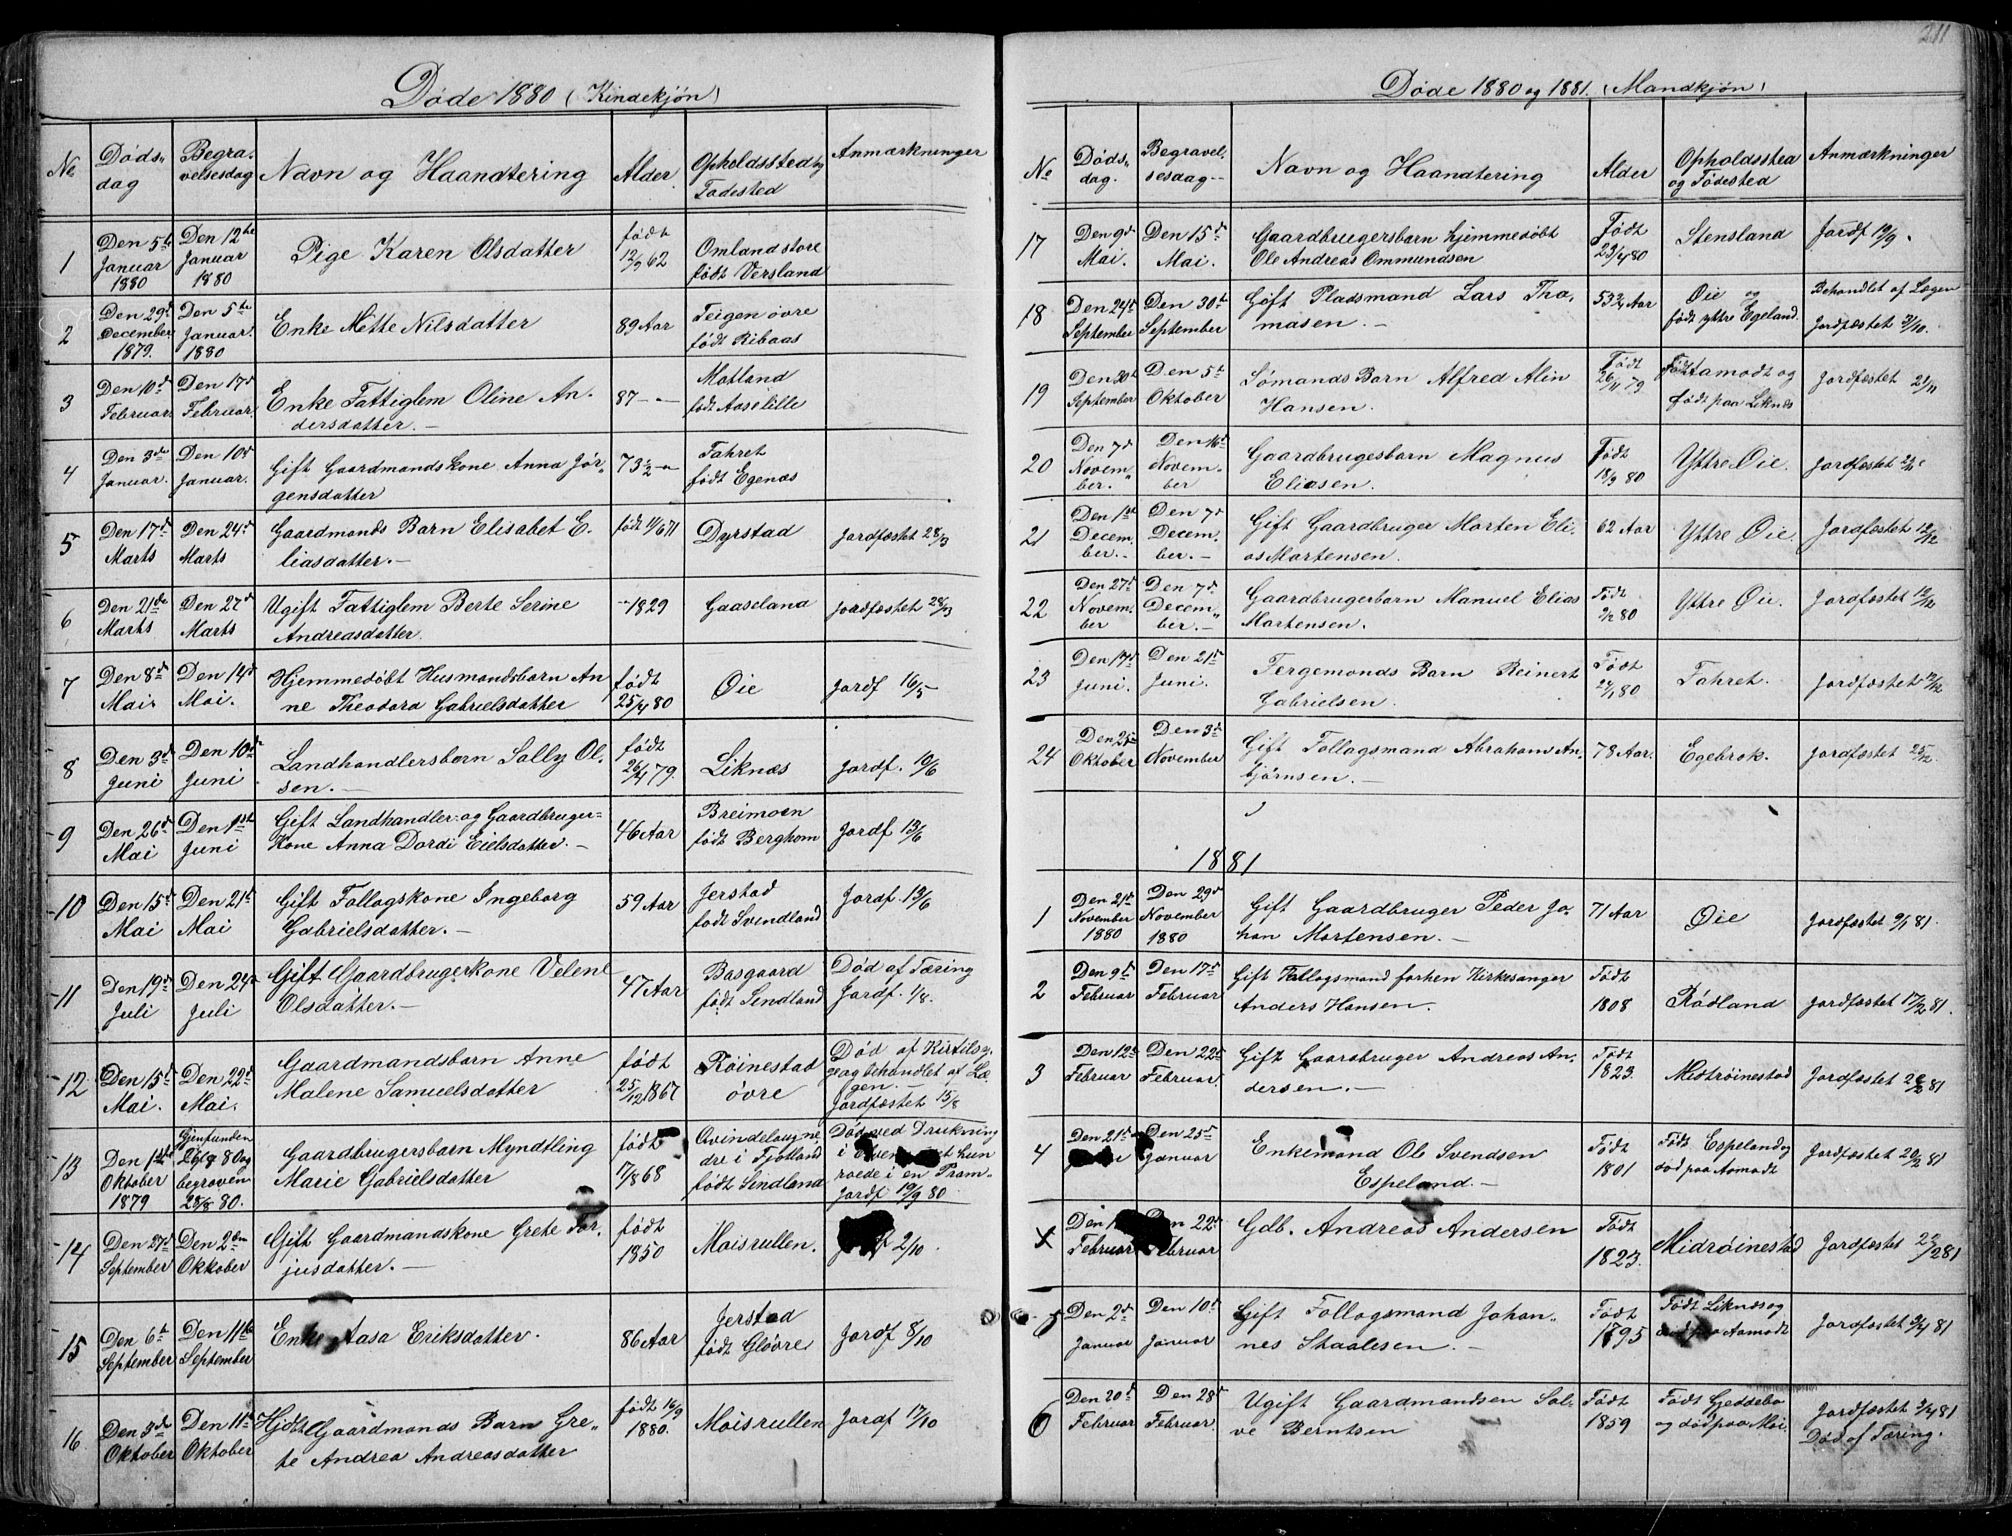 211
Døde 1880 (Kindekjøn)
No
Døds-
dag
Begra-
velsesdag
Navn og Haandtering
Alder
Opholdssted og
Fødested
Anmærkninger
1
Den 5te
Januar
1880
Den 12te
Januar
1880
Pige Karen Olsdatter
født
12/9 62
Omland store
født Versland
2
Den 29de
December
1879.
Den 5te
Januar.
1880
Enke Mette Nilsdatter
89 Aar
Teigen øvre
født Ribaas
3
Den 10de
Februar
Den 17d
Februar
Enke Fattiglem Oline An-
dersdatter.
87 - "
Motland
født Aaselille
4
Den 3de
Januar.
Den 10d
Januar.
Gift Gaardmandskone Anna Jør-
gensdatter
73 1/2 - "
Fahret
født Egenæs
5
Den 17d
Marts
Den 24d
Marts
Gaardmands Barn Elisabet E-
liasdatter.
født 11/6 71
Dyrstad
Jordfæstet 28/3
6
Den 21de
Marts
Den 27d
Marts
Ugift Fattiglem Berte Serine
Andreasdatter.
- 1829
Gaaseland
Jordfæstet 28/3
7
Den 8de
Mai
Den 14d
Mai.
Hjemmedøbt Husmandsbarn An
ne Theodora Gabrielsdatter
født
25/4 80
Øie
Jordf 16/5
8
Den 3d
Juni
Den 10d
Juni
Landhandlersbarn Sally Ol-
sen.
født
26/4 79.
Liknæs
Jordf. 10/6
9
Den 26d
Mai
Den 1ste
Juni
Gift Landhandler- og Gaardbruger-
Kone Anna Dordi Eielsdatter.
46 Aar
Breimoen
født Berghom
Jordf 13/6
10
Den 15d
Mai
Den 21d
Mai
Gift Follogskone Ingeborg
Gabrielsdatter.
59 Aar
Jerstad
født Svendland
Jordf 13/6
11
Den 19d
Juli
Den 24d
Juli
Gift Gaardbrugerkone Velene
Olsdatter.
47 Aar
Basgaard
født Sindland
Død af Tæring
Jordf. 1/8.
12
Den 15d
Mai.
Den 22d
Mai.
Gaardmandsbarn Anne
Malene Samuelsdatter
født
25/12 1867
Røinestad
øvre
Død af Kirtilsy-
ge og behandlet af Læ
gen.
Jordfæstet 15/8
13
Den 1ste
Oktober
1879
Gjenfunden
26/8 80 og
begraven
28/8 80.
Gaardbrugersbarn Myndtling
Marie Gabrielsdatter
født
17/8 68
Qvindelougne
dre i Fjotland
født Sindland
Død ved Drukning
hun
roede i en Pram
Jordf 19/9 80
14
Den 27d
September
Den 2den
Oktober
Gift Gaardmandskone Grete Tar-
jusdatter.
født
1850
Moisrullen.
2/10.
15
Den 6te
September
Den 11te
September
Enke Aasa Eriksdatter.
86 Aar
Jerstad
født Gløvre
Jordf 8/10
16
Den 3de
Oktober
Den 11te
Oktober
Hjdbt Gaardmands Barn Gre-
te Andrea Andreasdatter
født 16/9
1880.
Moisrullen
Jordf 17/10
Døde 1880 og 1881. (Mandkjøn)
No
Døds-
dag.
Begravel-
sesdag
Navn og Haandtering
Alder
Opholdsstea
og Fødested
Anmærkninger
17
Den 9d
Mai.
Den 15d
Mai.
Gaardbrugersbarn hjemmedøbt
Ole Andreas Ommundsen
Født
23/4 80
Stensland
Jordf 12/9
18
Den 24d
September
Den 30te
September
Gift Pladsmand Lars Tho-
masen.
53 3/4 Aar
Øie og
født yttre Egeland.
Behandlet af Lægen
Jordfæstet 3/10.
19
Den 30t
September
Den 5t
Oktober
Sømands Barn Alfred Alin
Hansen.
Født
26/11 79
Født Aamodt og
født paa Liknes
Jordfæstet 21/11
20
Den 7d
Novem-
ber.
Den 16d
Novem-
ber
Gaardbrugesbarn Magnus
Eliasen.
Født
18/9 80
Yttre Øie.
Jordfæstet 21/11
21
Den 1st
Decem-
ber.
Den 7d
Decem-
ber.
Gift Gaardbruger Morten Eli-
as Mortensen.
62 Aar
Yttre Øie.
Jordfæstet 12/12
22
Den 27d
Novem-
ber
Den 7d
Decem-
ber.
Gaardbrugerbarn Manuel Elias
Mortensen.
Født
2/2 80
Yttre Øie.
Jordfæstet 12/12
23
Den 17d
Juni.
Den 21d
Juni.
Færgemands Barn Reinert
Gabrielsen.
Født
24/1 80
Fahret.
Jordfæstet 12/12
24
Den 25d
Oktober
Den 3d
November
Gift Follogsmand Abraham An-
bjørnsen.
78 Aar.
Egebrok.
Jordfæstet 25/12
1881
1
Den 21d
November
1880
Den 29d
November
1880
Gift Gaardbruger Peder Jo-
han Mortensen.
71 Aar
Øie
Jordfæstet 9/1 81.
2
Den 9d
Februar
Den 17d
Februar
Gift Follogsmand forhen Kirkesanger
Anders Hansen.
Født
1808
Rødland
Jordfæstet 17/2 81.
3
Den 12d
Februar
Den 22d
Februar.
Gift Gaardbruger Andreas An-
dersen.
Født
1823.
Midtrøinestad
Jordfæstet 22/2 81
4
Den 21d
Den 25d
Januar
Enkemand Ole Svendsen
Espeland.
Født
1801
Født Espeland og
død paa Aamodt
Jordfæstet 20/2 81
X
Den 1
Februar
Den 22d
Februar
Gdb. Andreas Andersen
Født
1823.
Midrøinestad
Jordfæstet 22/2 81
5
Den 2d
Januar
Den 10d
Januar
Gift Follogsmand Johan-
nes Skaalesen.
Født
1795
Født Liknes og
død paa Aamodt
Jordfæstet 3/4 81
6
Den 20d
Februar
Den 28d
Februar.
Ugift Gaardmandsen Sal-
ve Berntsen
Født
1859
Født Geddebo
og død paa Moi.
Jordfæstet 3/4 81
Død af Tæring.